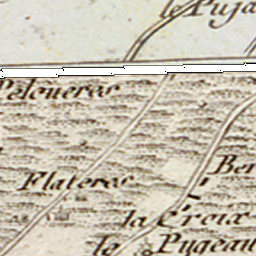 le Puja
Peloueras
Ber
Flateras
la Croix
le Pugeau